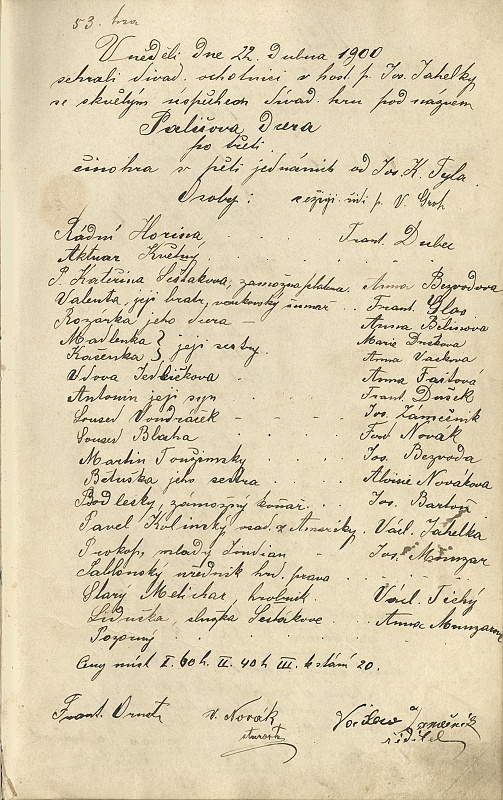 53. hra
V neděli dne 22. Dubna 1900
sehráli divad. ochotníci v host. p. Jos. Jahelky
se skvělým úspěchem divad. hru pod názvem
Paličova dcera
po třetí
činohra v pěti jednáních od Jos. K. Tyla.
Osoby: režiji řídí p. V. Groh
Rádní Horina . . . Frant. Dubec
Aktuar Květný . . .
P. Kateřina Šestáková, zámožná platena. Anna Bezvodova
Valenta, její bratr, venkovský šumař . . Frant. Glos
Rozárka jeho dcera — Anna Bělinova
Madlenka } její sestry. Marie Duškova
Kačenka } Anna Vackova
Vdova Jedličkova . Anna Faitová
Antonín její syn Frant. Dušek
Soused Vondráček - - - - Jos. Zámečník
Soused Blaha . . . Ferd. Novák
Martin Toužimský . . . Jos. Bezvoda
Bětuška jeho sestra . . . Aloisie Nováková
Podleský, zámožný koňař . . . Jos. Bartoň
Pavel Kolinský osad. z Ameriky. Václ. Jahelka
Prokop, mladý Indian - . . Jos. Munzar
Jablonský úředník hrd. práva . . .
Starý Melichar, hrobník . . . Václ. Tichý
Liduška, služka Šestákové . . Anna Munzarova
Pozorný . . . .
Ceny míst I. 60 h. II. 40 h III. k stání 20.
Frant. Ornst V. Novák Václav Zámečník
starosta ředitel